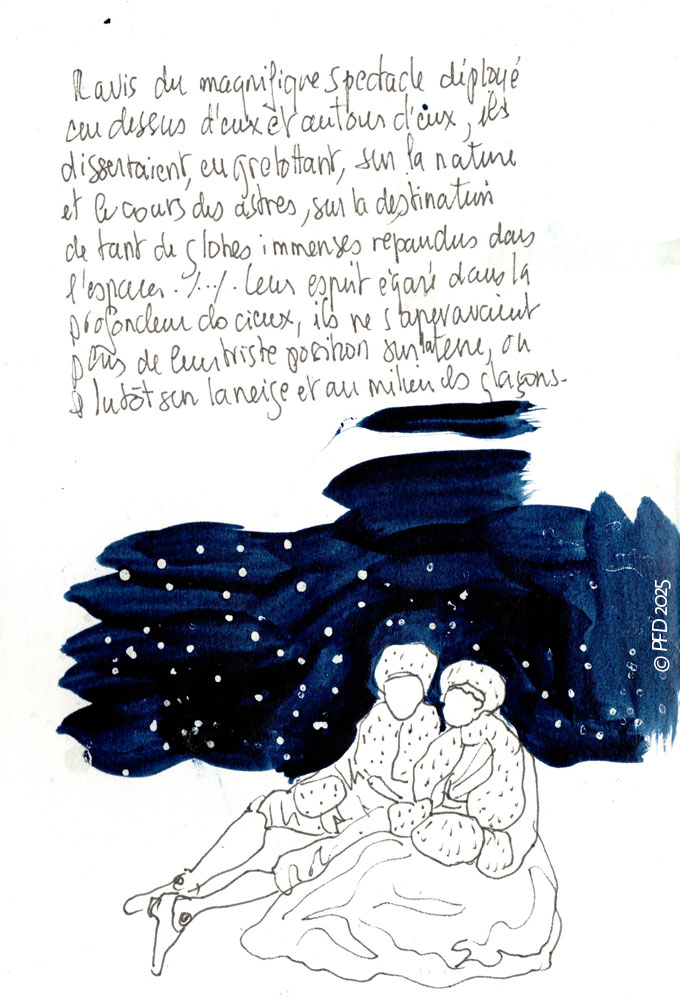 Ravis du magnifique spectacle déployé
au dessus d'eux et autour d'eux, ils
dissertaient, en grelottant, sur la nature
et le cours des astres, sur la destination
de tant de globes immenses répandus dans
l'espace. /.../. Leur esprit égaré dans la
profondeur des cieux, ils ne s'apercevaient
plus de leur triste position sur la terre, ou
plutôt sur la neige et au milieu des glaçons.
© PFD 2025